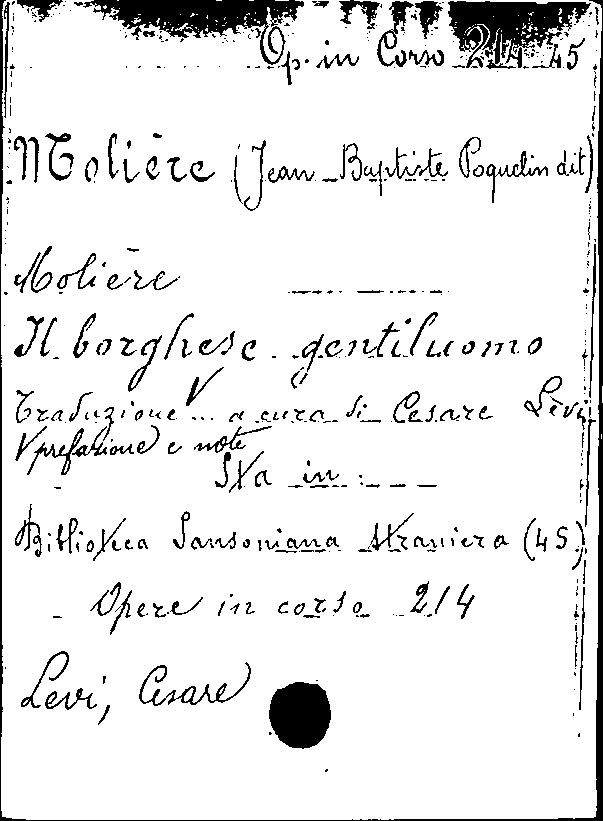 Op. in Corso 214 45
Molière (Jean-Baptiste Poquelin dit)
Molière
Il borghese gentiluomo
Traduzione V... a cura di Cesare Lèvi
V prefazione e note
Sta in:
Biblioteca Sansoniana straniera (45)
- Opere in corso 214
Levi, Cesare